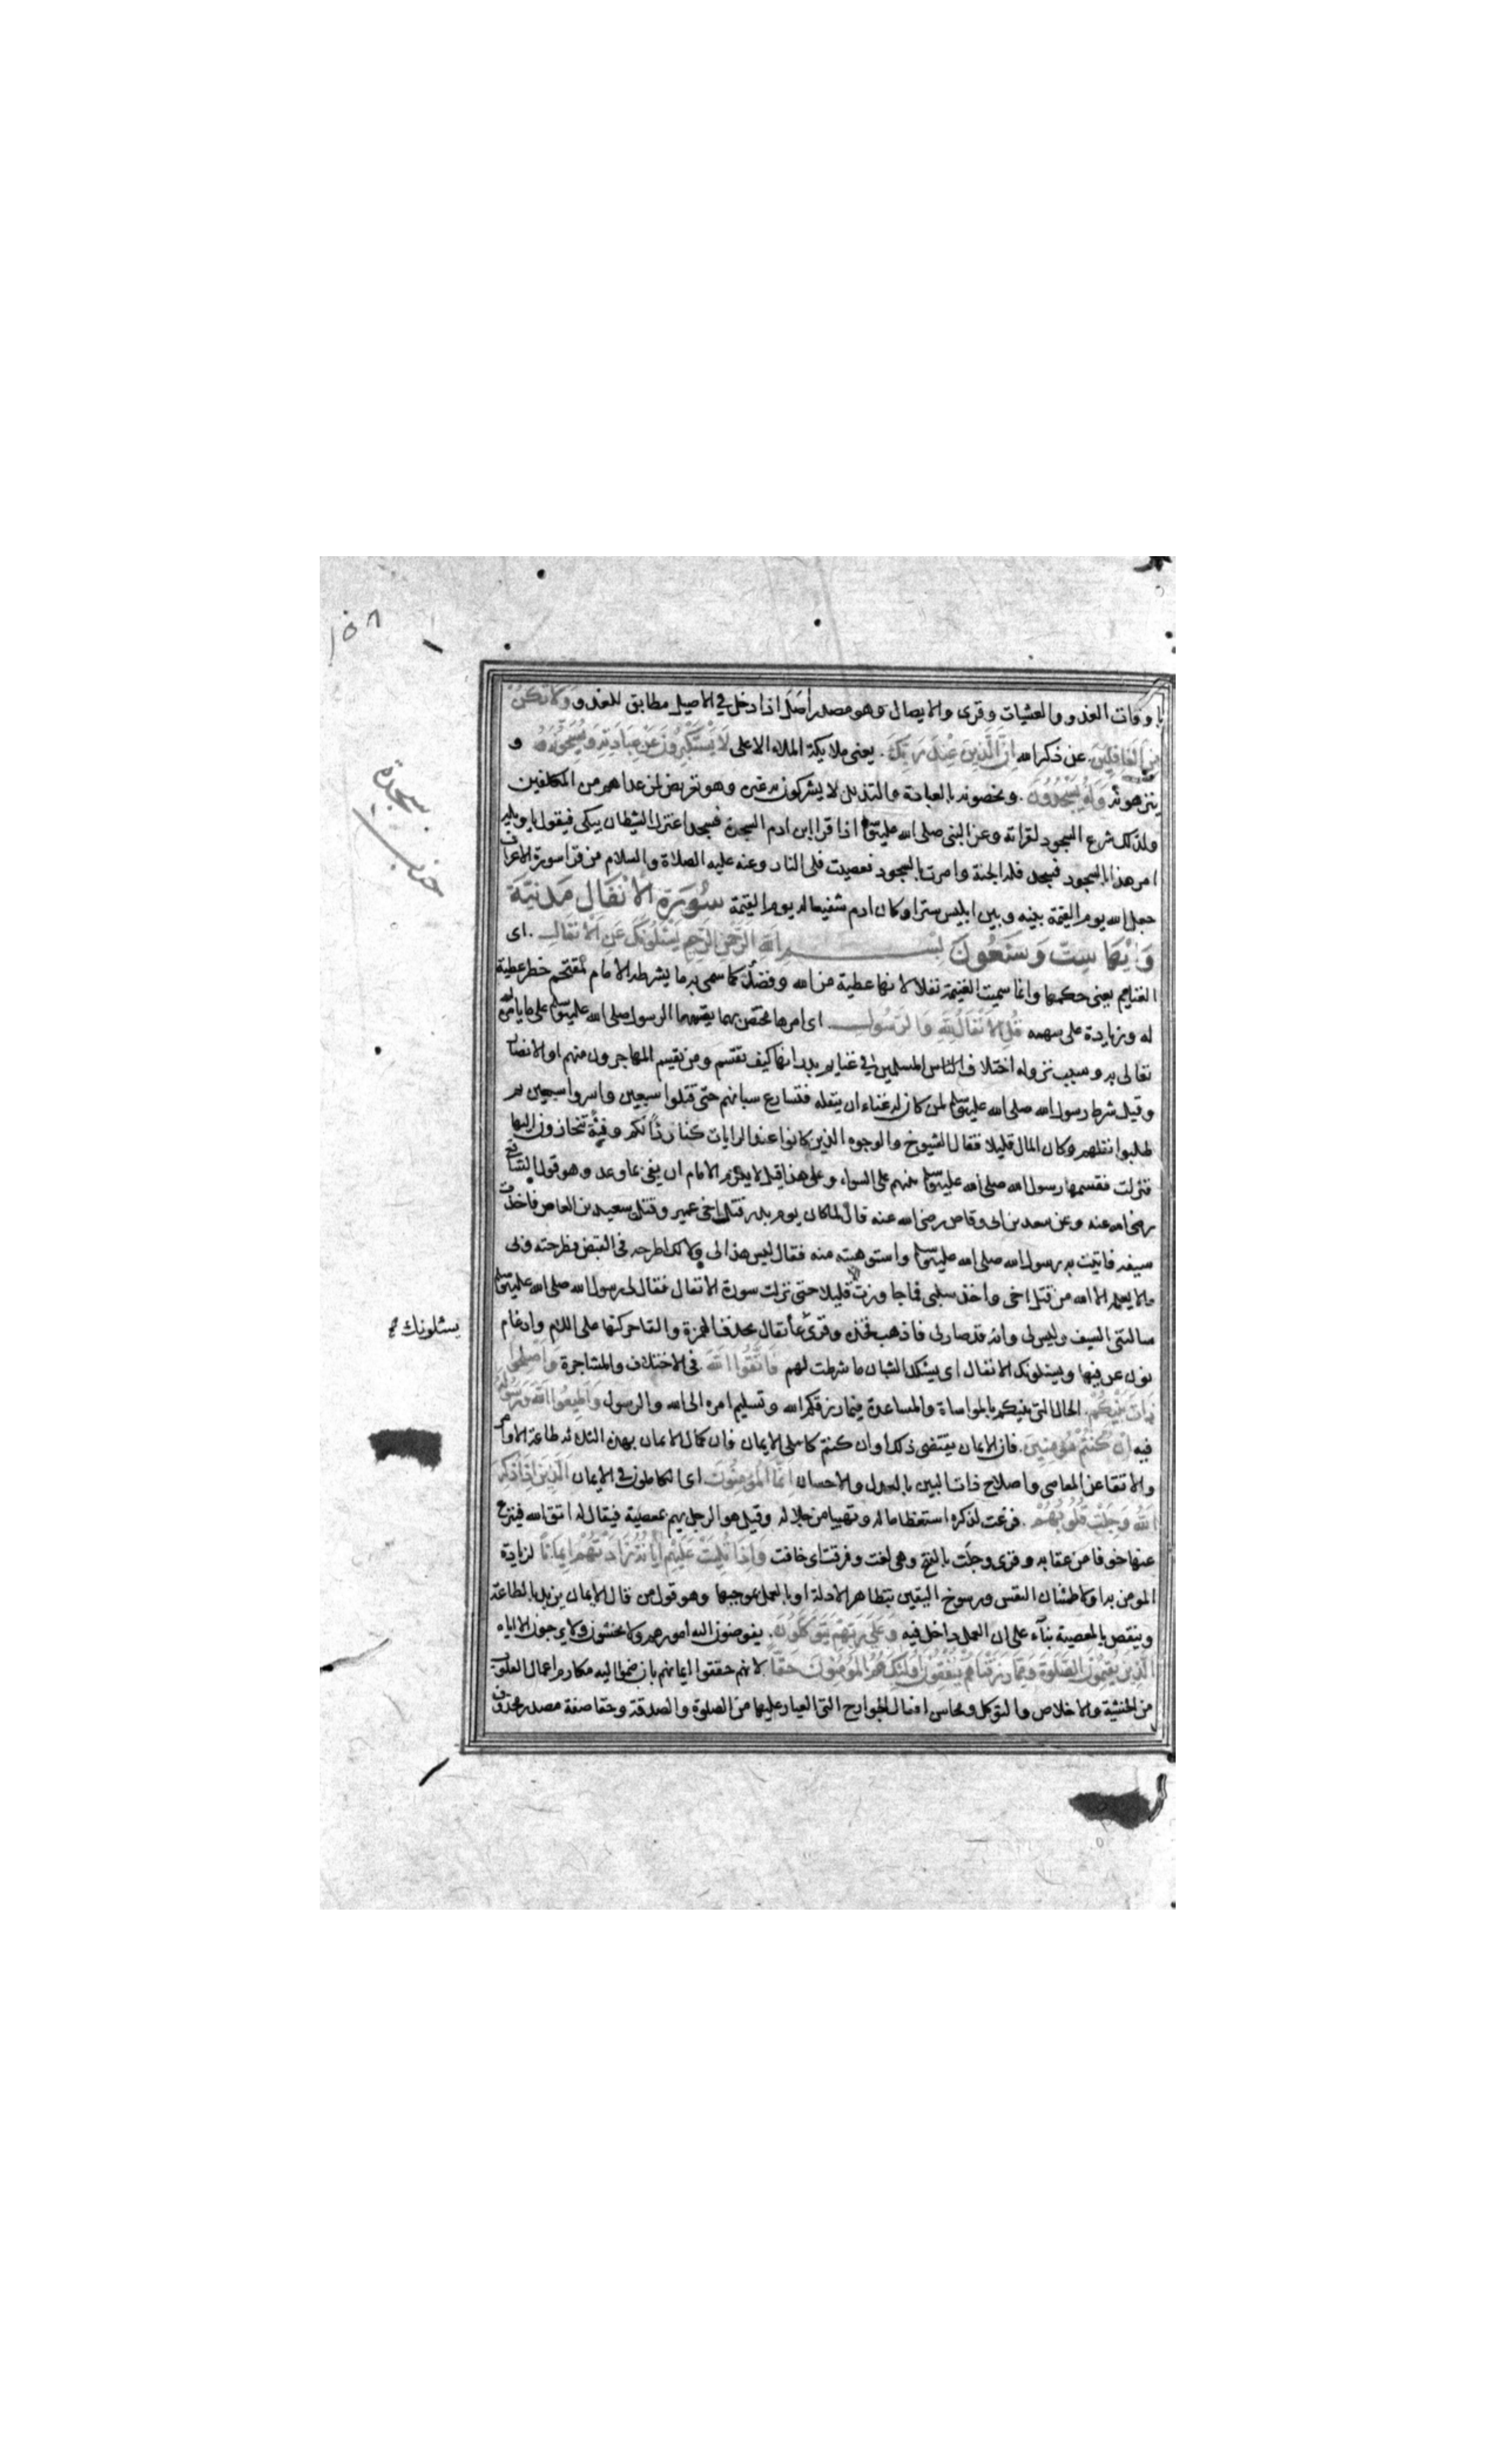 ١٥٨
باوقات الغدو والعشيات وقرى والايصال وهو مصدر اصل اذا دخل في الاصيل مطابق للغدو وَلَا تَكُنْ
مِنَ الْغَافِلِينَ عن ذكر الله اِنَّ الَّذِينَ عِنْدَ رَبِّكَ يعنى ملايكة الملاء الاعلى لَا يَسْتَكْبِرُونَ عَنْ عِبَادَتِهِ وَيُسَبِّحُونَهُ و
ينزهونه وَلَهُ يَسْجُدُونَ ويخصونه بالعبادة والتذلل لا يشركون به غيره وهو تعريض لمن عداهم من المكلفين
ولذلك شرع السجود لقراته وعن النبى صلى الله عليه وسلم اذا قرا ابن ادم السجدة فسجد اعتزل الشيطان يبكى فيقول يا ويله
امر هذا بالسجود فسجد فله الجنة وامرت بالسجود فعصيت فلى النار وعنه عليه الصلاة والسلام من قرا سورة الاعراف
جعل الله يوم القيمة بينه وبين ابليس سترا وكان ادم شفيعا له يوم القيمة سُورَةِ الْاَنْفَال مَدَنِيَّة
وَايُهَا سِتّ وَسَبْعُونَ بسم الله الرَّحْمٰنِ الرَّحِيمِ يَسْئَلُونَكَ عَنِ الْاَنْفَالِ اى
الغنايم يعنى حكمها وانما سميت الغنيمة نفلا لانها عطية من الله وفضل كما سمى به ما يشرطه الامام لمقتحم خطر عطية
له وزيادة على سهمه قُلِ الْاَنْفَالُ لِلّٰهِ وَالرَّسُولِ اى امرها مختص بهما يقسمها الرسول صلى الله عليه وسلم على ما يامره الله
تعالى به وسبب نزوله اختلاف الناس المسلمين فى غنايم بدر انها كيف تقسم ومن يقسم المهاجرون منهم او الانصار
وقيل شرط رسول الله صلى الله عليه وسلم لمن كان له غناء ان ينفله فتسارع شبانهم حتى قتلوا سبعين واسروا سبعين ثم
طلبوا نفلهم وكان المال قليلا فقال الشيوخ والوجوه الذين كانوا عند الرايات كنا ردًا لكم وفئة تنحازون اليها
فنزلت فقسمها رسول الله صلى الله عليه وسلم بينهم على السواء وعلى هذا قيل لا يلزم الامام ان يفى بما وعد وهو قول الشافعى
رضى الله عنه وعن سعد بن ابى وقاص رضى الله عنه قال لما كان يوم بدر قتل اخى عمير وقتلت سعيد بن العاص فاخذت
سيفه فاتيت به رسول الله صلى الله عليه وسلم واستوهبته منه فقال ليس هذا لى ولا لك اطرحه فى القبض فطرحته وبى
ما لا يعلمه الا الله من قتل اخى واخذ سلبى فما جاوزت الا قليلا حتى نزلت سورة الانفال فقال لى رسول الله صلى الله عليه وسلم
سالتنى السيف وليس لى وانه قد صار لى فاذهب فخذه وقرئ علنفال بحذف الهمزة والقا حركتها على اللام وادغام
يسئلونك
نون عن فيها ويسئلونك الانفال اى يسئلك الشبان ما شرطت لهم فَاتَّقُوا اللّٰهَ فى الاختلاف والمشاجرة وَاَصْلِحُوا
ذَاتَ بَيْنِكُمْ الحال التى بينكم بالمواساة والمساعدة فيما رزقكم الله وتسليم امره الى الله والرسول وَاَطِيعُوا اللّٰهَ وَرَسُولَهُ
فيه اِنْ كُنْتُمْ مُؤْمِنِينَ فان الايمان يقتضى ذلك او ان كنتم كاملى الايمان فان كمال الايمان بهذه الثلاثه طاعة الاوامر
والاتقا عن المعاصى واصلاح ذات البين بالعدل والاحسان اِنَّمَا الْمُؤْمِنُونَ اى الكاملون فى الايمان الَّذِينَ اِذَا ذُكِرَ
اللّٰهُ وَجِلَتْ قُلُوبُهُمْ فزعت لذكره استعظاما له وتهيبا من جلاله وقيل هو الرجل يهم بمعصية فيقال له اتق الله فينزع
عنها خوفا من عقابه وقرى وجلت بالفتح وهى لغت وفرقت اى خافت وَاِذَا تُلِيَتْ عَلَيْهِمْ اٰيَاتُهُ زَادَتْهُمْ اِيمَانًا لزيادة
المومن به او لاطمئنان النفس ورسوخ اليقين بتظاهر الادلة او بالعمل بموجبها وهو قول من قال الايمان يزيد بالطاعة
وينقص بالمعصية بنآء على ان العمل داخل فيه وَعَلٰى رَبِّهِمْ يَتَوَكَّلُونَ يفوضون اليه امورهم ولا يخشون ولا يرجون الا اياه
الَّذِينَ يُقِيمُونَ الصَّلٰوةَ وَمِمَّا رَزَقْنَاهُمْ يُنْفِقُونَ اُولٰئِكَ هُمُ الْمُؤْمِنُونَ حَقًّا لانهم حققوا ايمانهم بان ضموا اليه مكارم اعمال القلوب
من الخشية والاخلاص والتوكل ومحاسن افعال الجوارح التى العيار عليها من الصلوة والصدقة وحقا صفة مصدر محذوف
سجدة
حزب